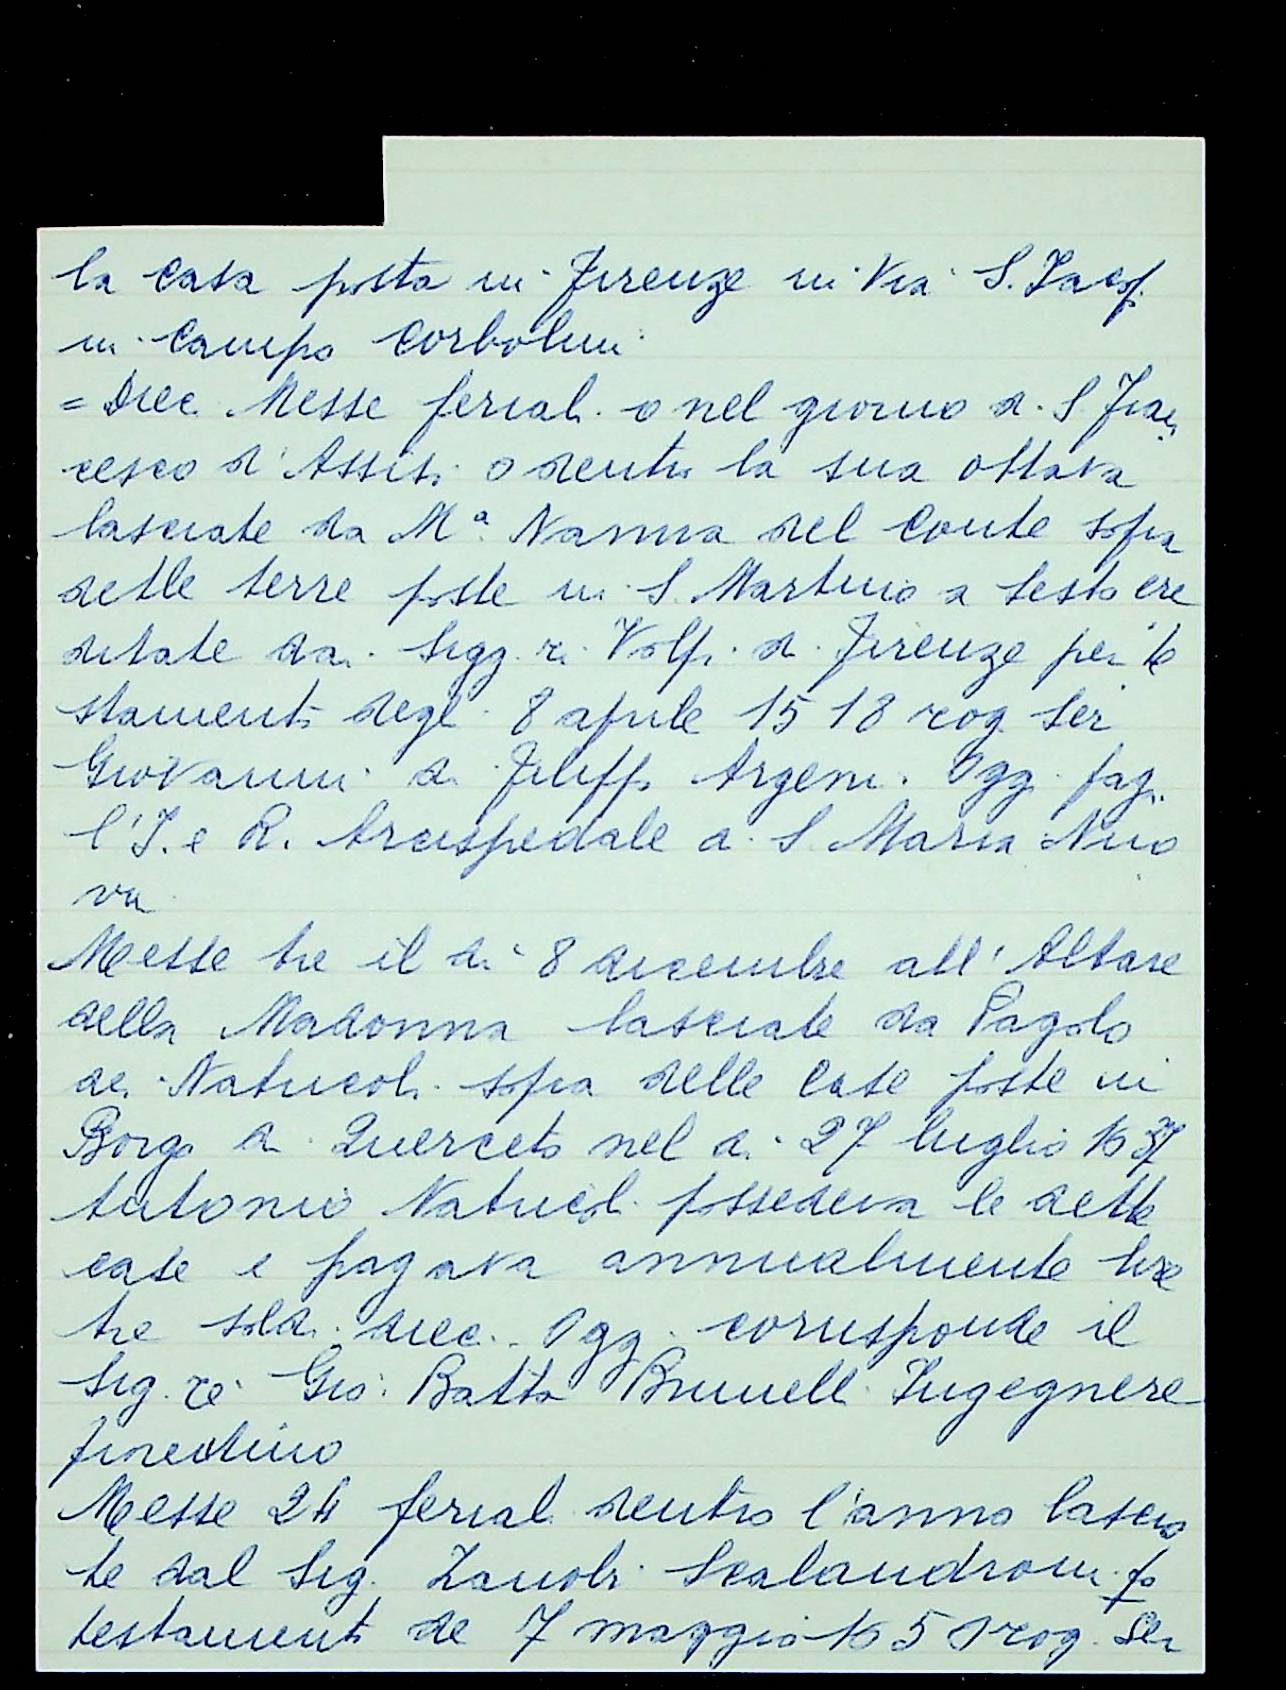 la casa posta in Firenze in Via S. Jacop.
in Campo Corbolini
= Dieci Messe feriali o nel giorno di S. Fran
cesco d'Assisi o dentro la sua ottava
lasciate da Mª. Nanna del Conte sopra
delle terre poste in S. Martino a Sesto ere
ditate dai Sigg.ri Volpi di Firenze per te
stamento degli 8 aprile 1518 rog. Ser
Giovanni di Filippo Argeni. Oggi paga
l'I. e R. Arcispedale di S. Maria Nuo
va
Messe tre il dì 8 dicembre all'Altare
della Madonna lasciate da Pagolo
dei Natucoli sopra delle case poste in
Borgo di Querceto nel dì 27 luglio 1637
Antonio Natucoli possedeva le dette
case e pagava annualmente lire
tre soldi dieci. Oggi corrisponde il
Sig.re Gio. Batta Brunelli Ingegnere
fiorentino
Messe 24 feriali dentro l'anno lascia
te dal Sig. Zanobi Scalandroni p
testamento de 7 maggio 1650 rog. Ser